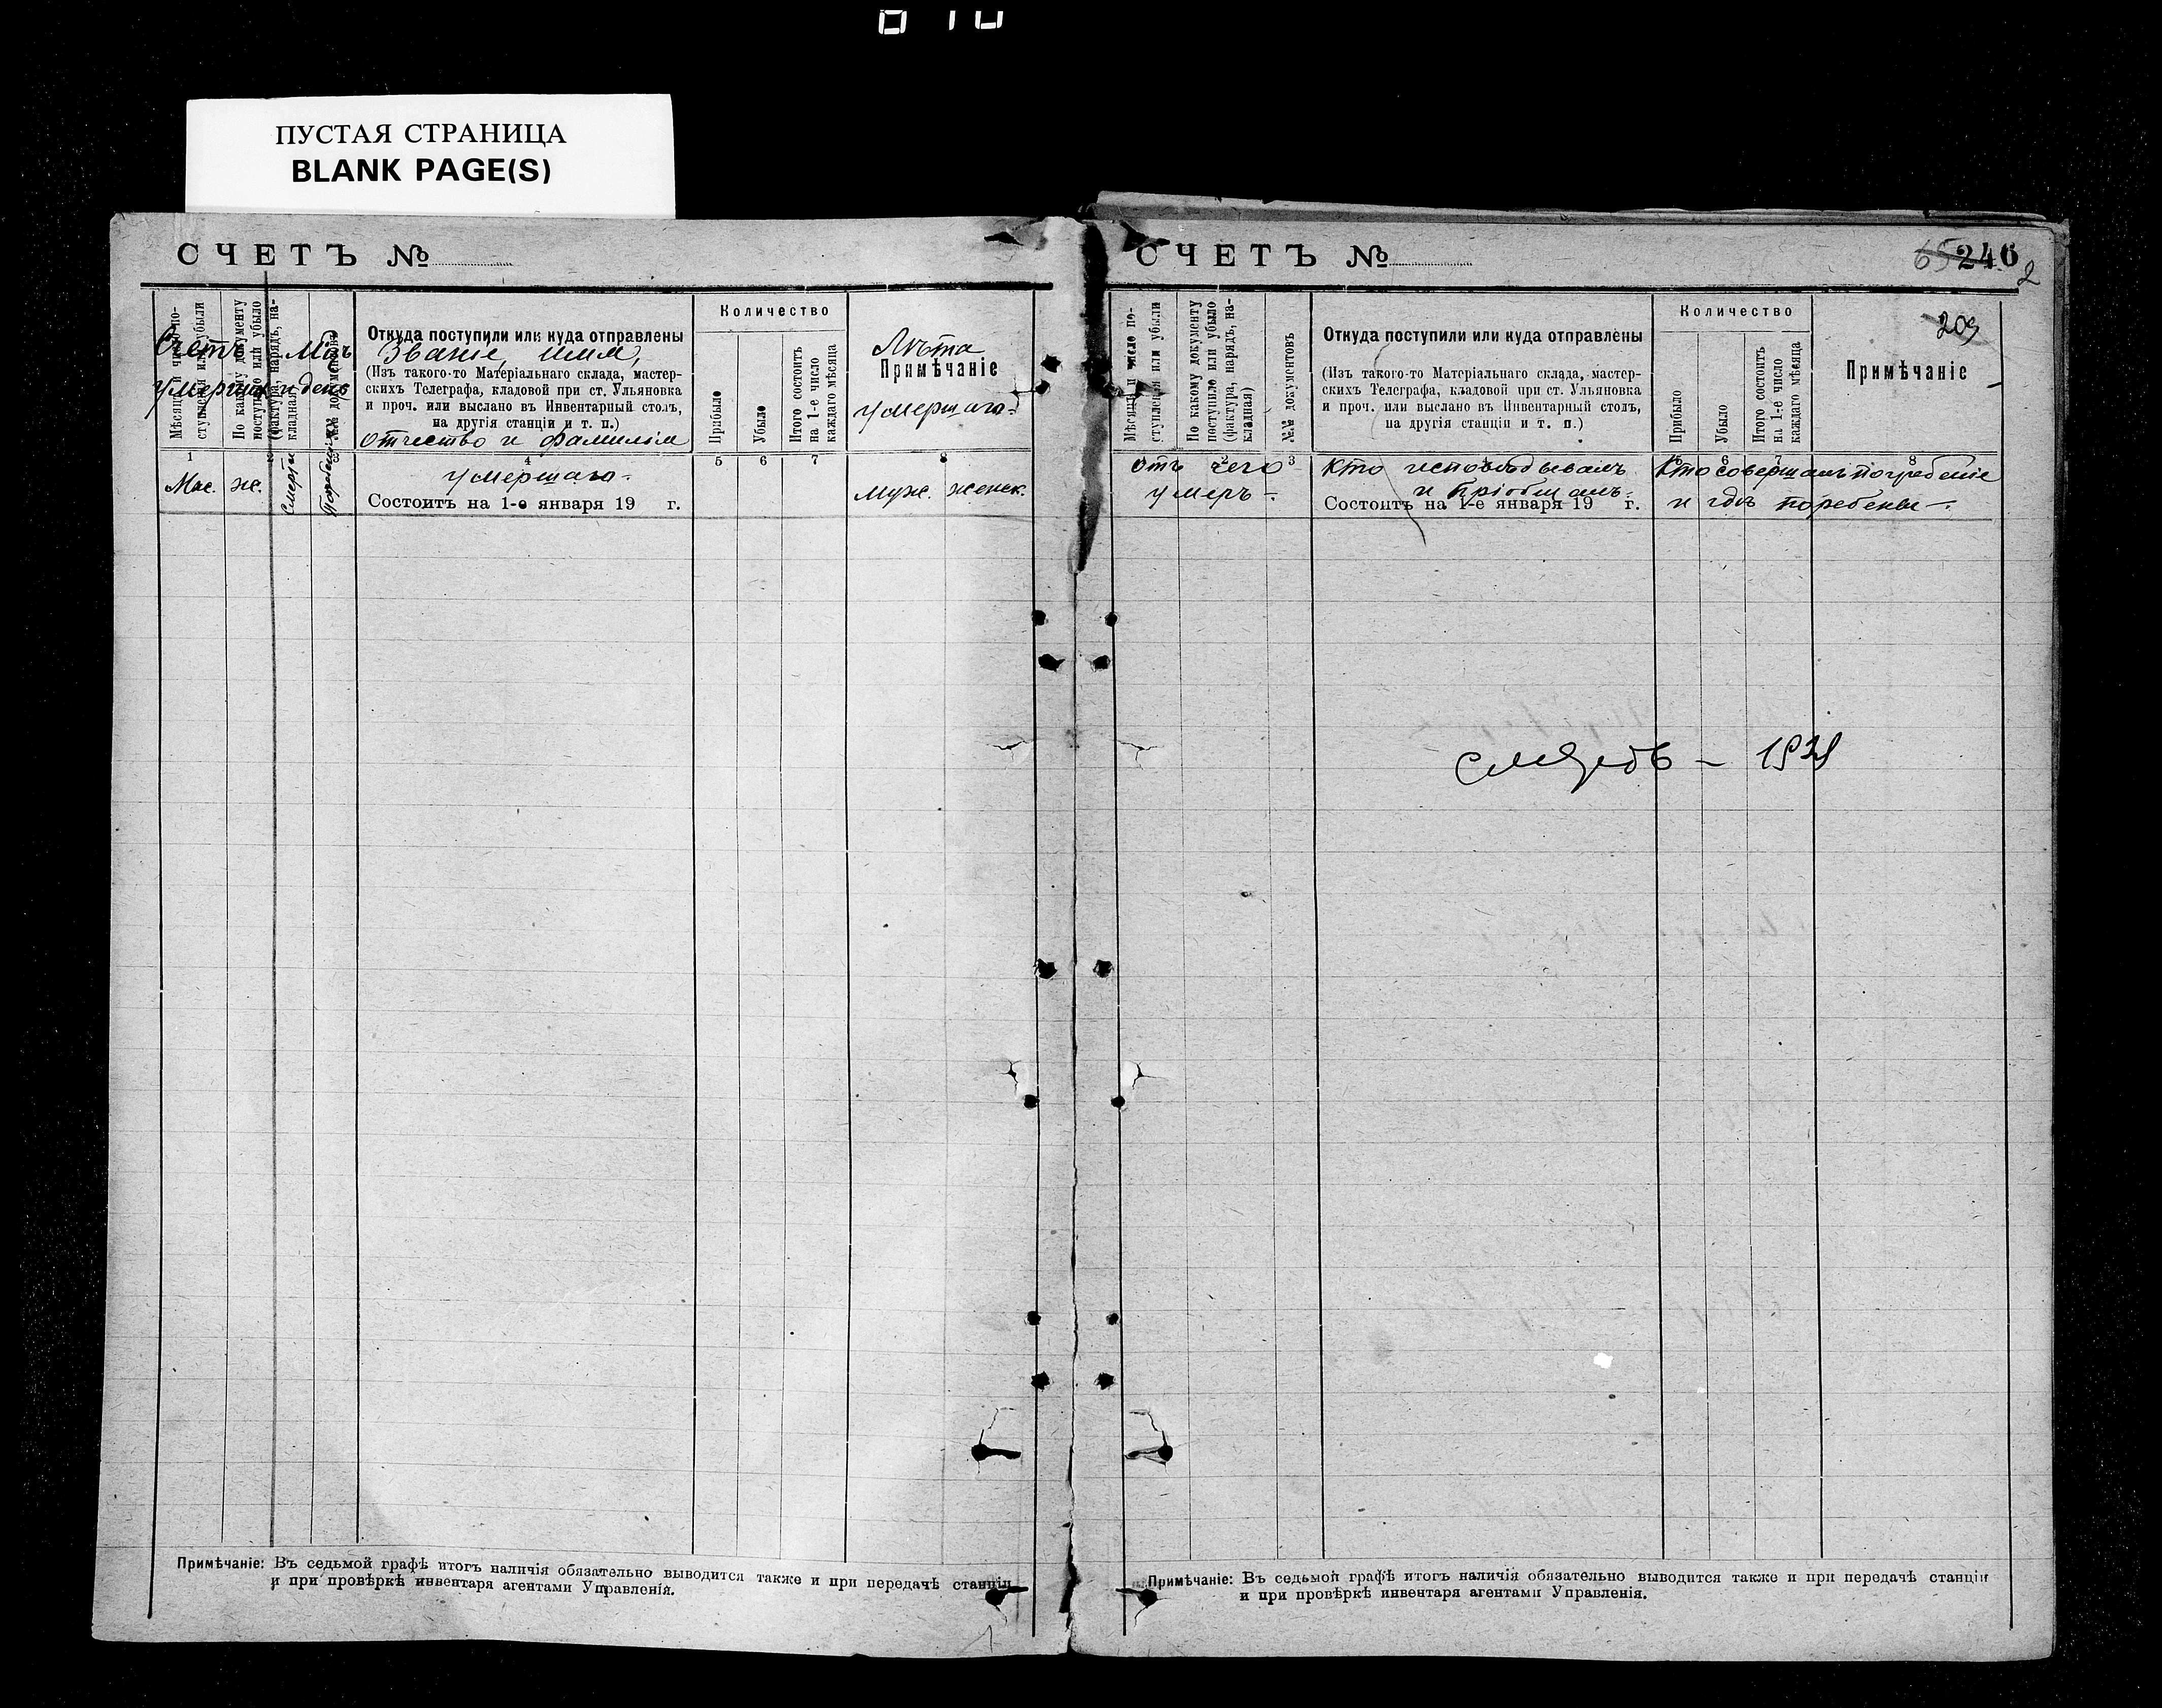 ПУСТАЯ СТРАНИЦА
BLANK PAGE(S)
СЧЕТЪ №
Мѣсяцъ и число поступленія или убыли
По какому документу поступило или убыло (фактура, нарядъ, накладная)
№№ документовъ
Откуда поступили или куда отправлены
(Изъ такого-то Матеріальнаго склада, мастер-
скихъ Телеграфа, кладовой при ст. Ульяновка
и проч. или выслано въ Инвентарный столъ,
на другія станціи и т. п.)
Количество
Прибыло
Убыло
Итого состоитъ
на 1-е число
каждаго мѣсяца
Примѣчаніе
Счетъ
умершихъ
и день
Званіе, имя,
отчество и фамилія
умершаго.
Лѣта
умершаго.
1 2 3 4 5 6 7 8
ж.
Муж. женск.
Состоитъ на 1-е января 19 г.
Примѣчаніе: Въ седьмой графѣ итогъ наличія обязательно выводится также и при передачѣ станціи
и при провѣркѣ инвентаря агентами Управленія.
СЧЕТЪ №
65 246
2
203
Мѣсяцъ и число по-
ступленія или убыли
По какому документу
поступило или убыло
(фактура, нарядъ, на-
кладная)
№№ документовъ
Откуда поступили или куда отправлены
(Изъ такого-то Матеріальнаго склада, мастер-
скихъ Телеграфа, кладовой при ст. Ульяновка
и проч. или выслано въ Инвентарный столъ,
на другія станціи и т. п.)
Количество
Прибыло
Убыло
Итого состоитъ
на 1-е число
каждаго мѣсяца
Примѣчаніе
3 6 7 8
Отъ чего
умеръ.
Кто исповѣдывалъ
и пріобщалъ.
Кто совершалъ погребеніе
и гдѣ погребены.
Состоитъ на 1-е января 19 г.
Примѣчаніе: Въ седьмой графѣ итогъ наличія обязательно выводится также и при передачѣ станціи
и при провѣркѣ инвентаря агентами Управленія.